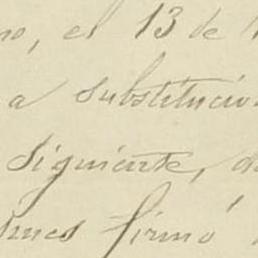 el 13 de
a substitución
siguiente,
firmó